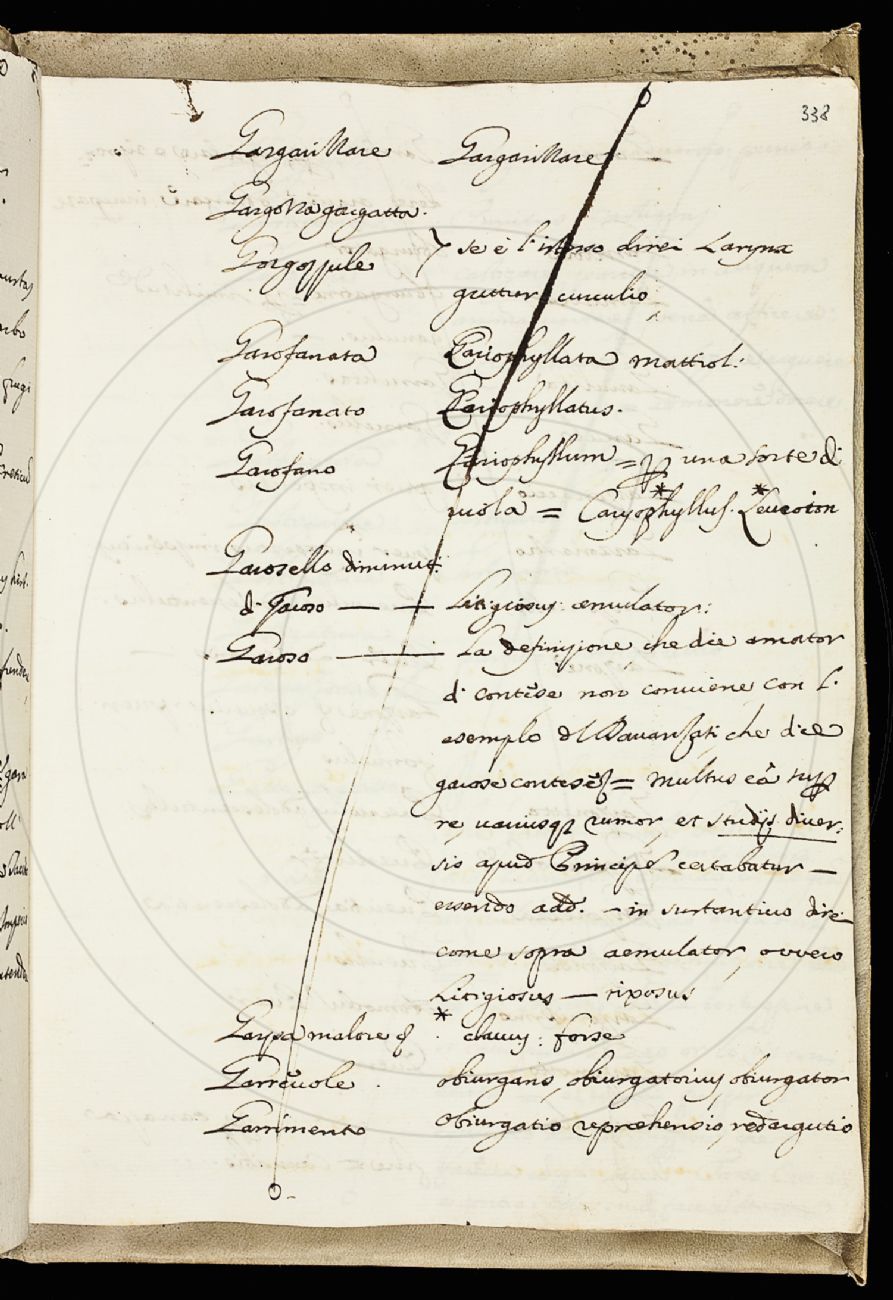 338
Gargarizzare Gargarizzare
Gargozza gargatta.
Gorgozzule se è l'interno direi Larynx
guttur curculio
Garofanata Cariophyllata Mattiol:
Garofanato Cariophyllatus.
Garofano Cariophyllum = una sorte di
viola = Caryophyllus. Leucoion
Garosello diminut:
di Garoso — Litigiosus: æmulator:
Garoso — La definizione, che dice amator
di contese non conviene, con l'
esempio Davanzati, che dice
garose contese = Multus eâ sup
re, variusq rumor, et studijs diver,
sis apud Principes certabatur —
essendo add. – in sustantivo dire
come sopra aemulator, ovvero
Litigiosus — rixosus
Garpa malore * clavus: forse
Garrevole. obiurgans, obiurgatorius, obiurgator
Garrimento obiurgatio repræhensio, redargutio